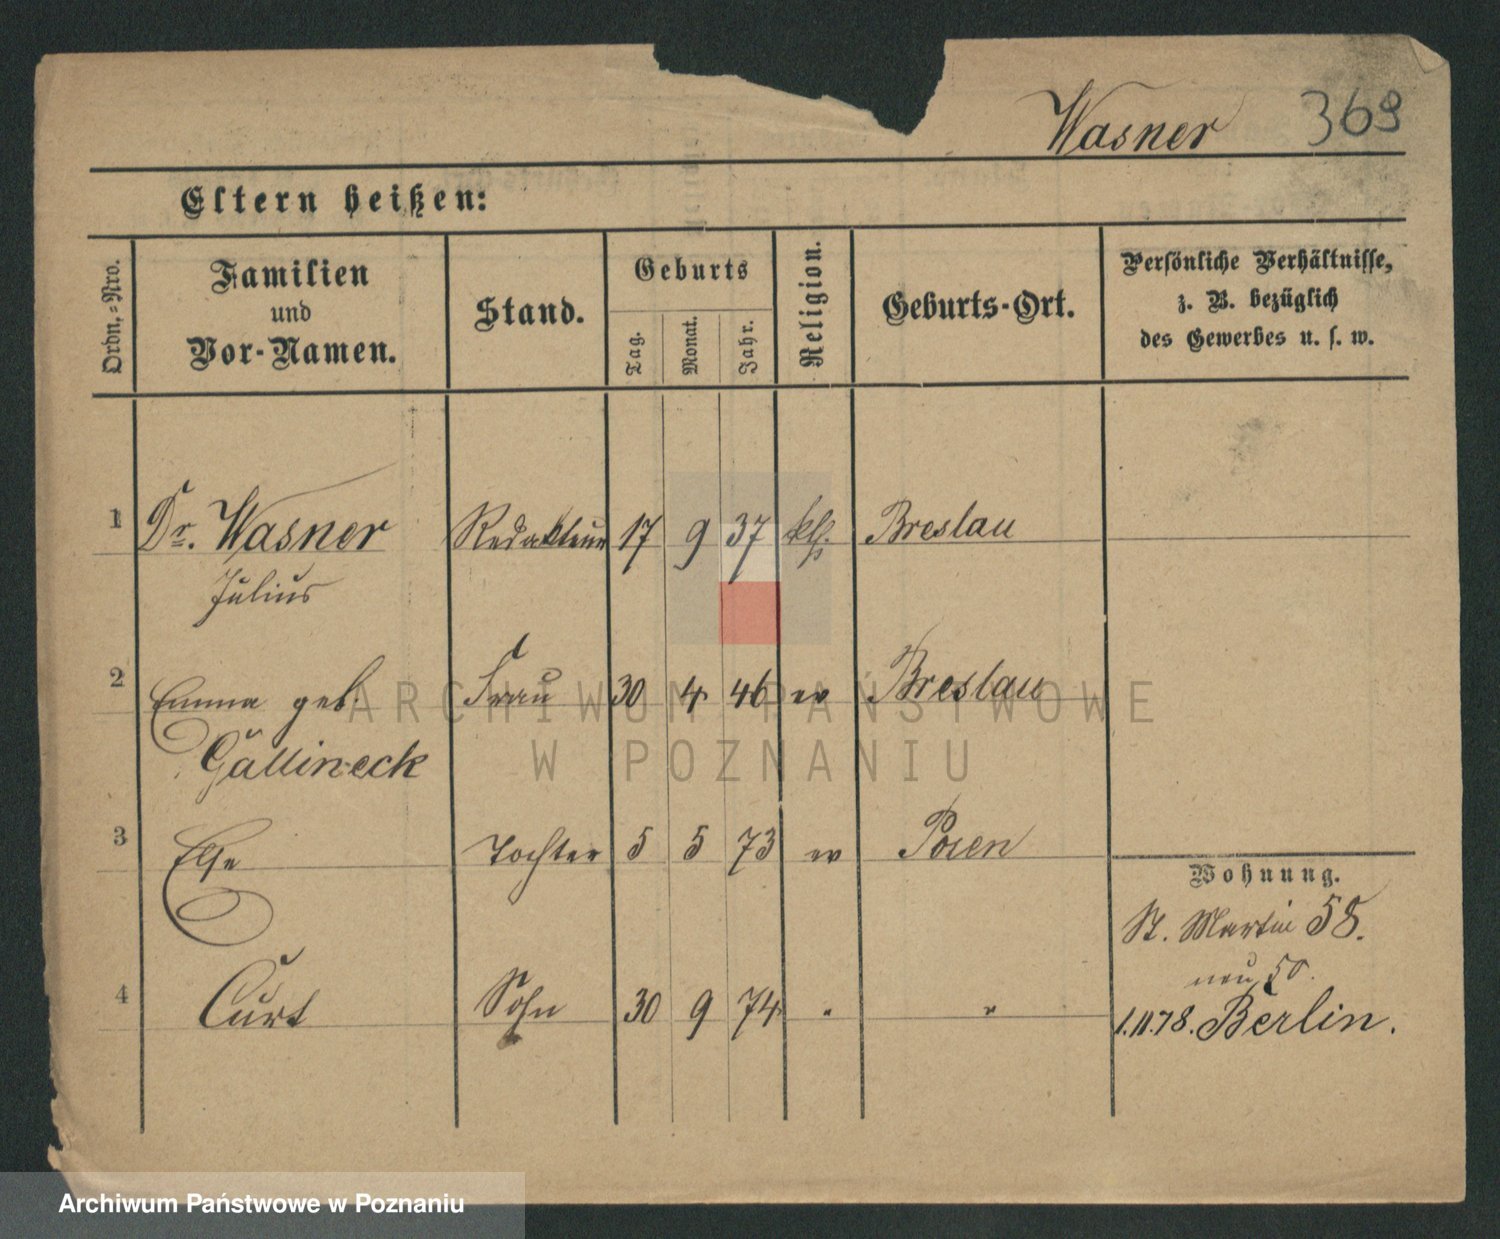 Wasner 369
Eltern heißen:
Ordn.-Nro.
Familien
und
Vor-Namen.
Stand.
Geburts
Tag.
Monat.
Jahr.
Religion.
Geburts-Ort.
Persönliche Verhältnisse,
z. B. bezüglich
des Gewerbes u. s. w.
1 Dr. Wasner Redakteur 17 9 37 kth. Breslau
Julius
2 Emma geb. Frau 30 4 46 ev Breslau
Gallineck
3 Else Tochter 5 5 73 ev Posen
Wohnung.
St. Martin 58.
neu 50.
4 Curt Sohn 30 9 74 " "
1.11.78. Berlin.
ARCHIWUM PAŃSTWOWE
W POZNANIU
Archiwum Państwowe w Poznaniu